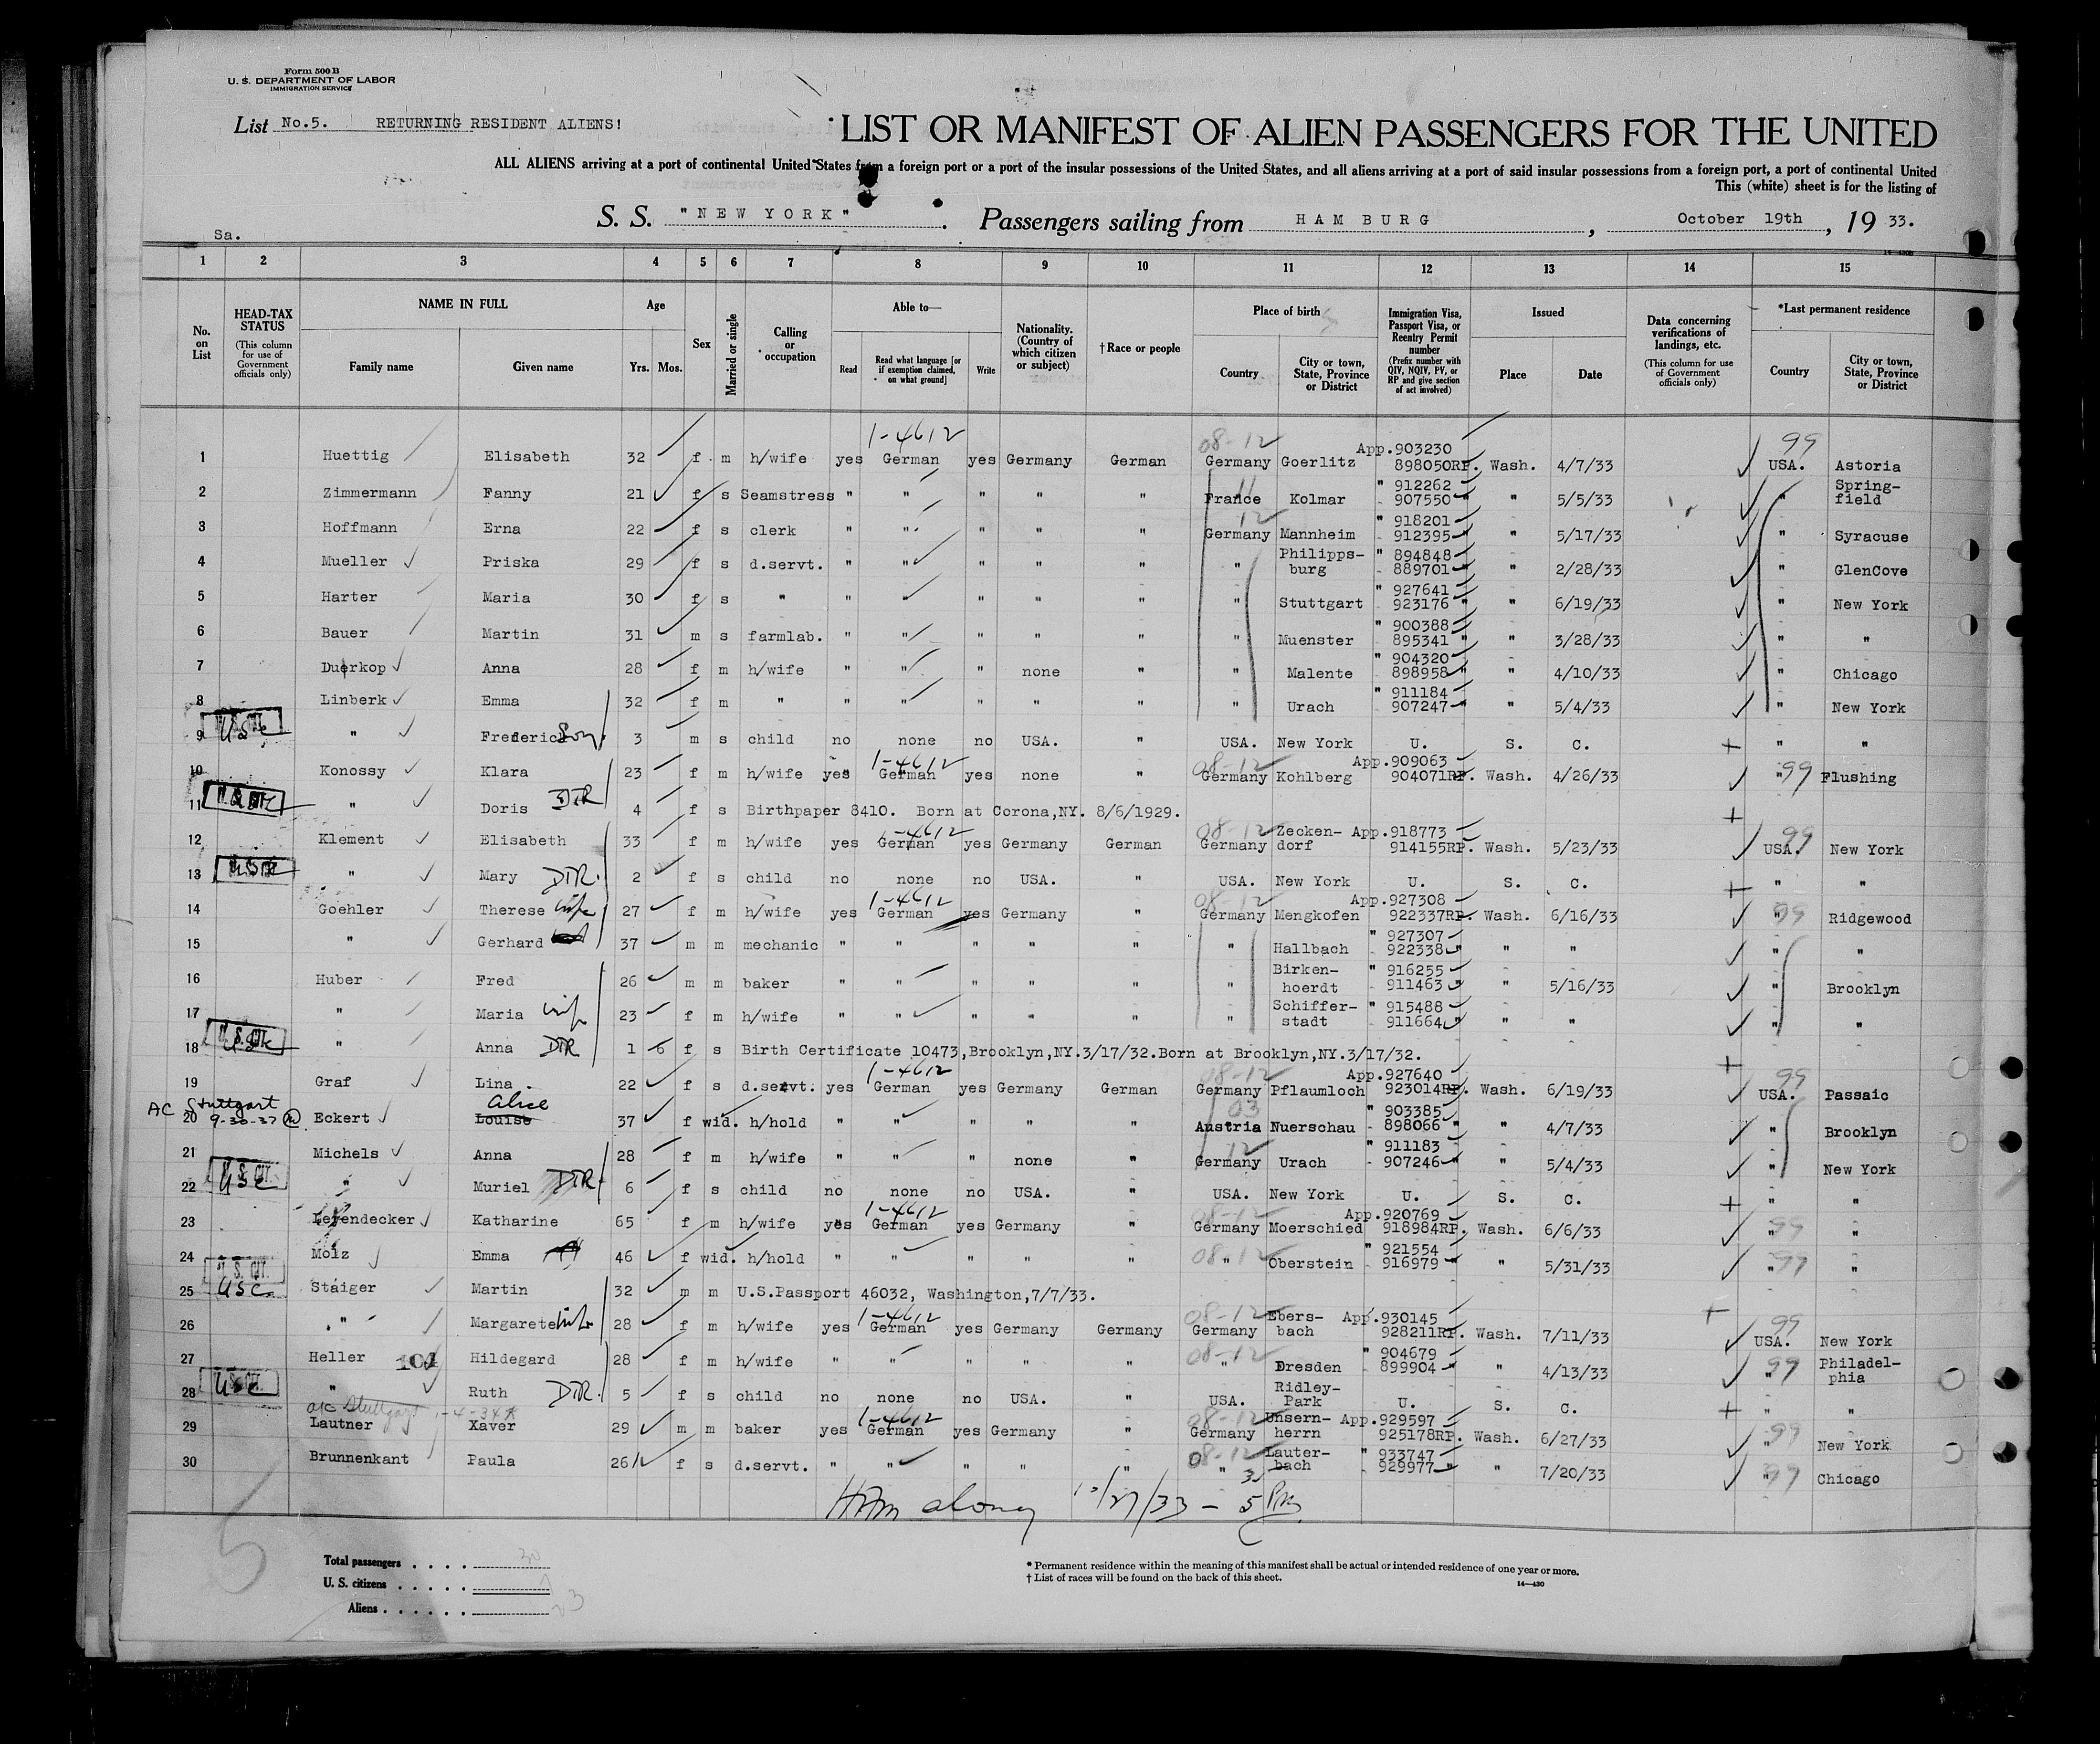 Form 500 B
U. S. DEPARTMENT OF LABOR
IMMIGRATION SERVICE
List No.5. RETURNING RESIDENT ALIENS!
LIST OR MANIFEST OF ALIEN PASSENGERS FOR THE UNITED
ALL ALIENS arriving at a port of continental United States from a foreign port or a port of the insular possessions of the United States, and all aliens arriving at a port of said insular possessions from a foreign port, a port of continental United
This (white) sheet is for the listing of
S. S. "NEW YORK" . Passengers sailing from HAMBURG , October 19th , 19 33.
Sa.
1 2 3 4 5 6 7 8 9 10 11 12 13 14 15
No. on List
HEAD-TAX STATUS (This column for use of Government officials only)
NAME IN FULL Family name Given name
Age Yrs. Mos.
Sex
Married or single
Calling or occupation
Able to— Read Read what language [or if exemption claimed, on what ground] Write
Nationality. (Country of which citizen or subject)
†Race or people
Place of birth Country City or town, State, Province or District
Immigration Visa, Passport Visa, or Reentry Permit number (Prefix number with QIV, NQIV, PV, or RP and give section of act involved)
Issued Place Date
Data concerning verifications of landings, etc. (This column for use of Government officials only)
*Last permanent residence Country City or town, State, Province or District
1-4612 08-12 99
1 Huettig Elisabeth 32 f m h/wife yes German yes Germany German Germany Goerlitz App.903230 898050RP. Wash. 4/7/33 USA. Astoria
2 Zimmermann Fanny 21 f s Seamstress " " " " " France Kolmar " 912262 907550 " " 5/5/33 " Spring-field
3 Hoffmann Erna 22 f s clerk " " " " " 12 Germany Mannheim " 918201 912395 " " 5/17/33 " Syracuse
4 Mueller Priska 29 f s d.servt. " " " " " " Philipps-burg " 894848 889701 " " 2/28/33 " GlenCove
5 Harter Maria 30 f s " " " " " " " Stuttgart " 927641 923176 " " 6/19/33 " New York
6 Bauer Martin 31 m s farmlab. " " " " " " Muenster " 900388 895341 " " 3/28/33 " "
7 Duerkop Anna 28 f m h/wife " " " none " " Malente " 904320 898958 " " 4/10/33 " Chicago
8 Linberk Emma 32 f m " " " " " " " Urach " 911184 907247 " " 5/4/33 " New York
9 USC " Frederic Son 3 m s child no none no USA. " USA. New York U. S. C. " "
10 Konossy Klara 23 f m h/wife yes 1-4612 German yes none " 08-12 Germany Kohlberg App.909063 904071RP. Wash. 4/26/33 " 99 Flushing
11 " Doris DTR 4 f s Birthpaper 8410. Born at Corona,NY. 8/6/1929.
12 Klement Elisabeth 33 f m h/wife yes 1-4612 German yes Germany German 08-12 Germany Zecken-dorf App.918773 914155RP. Wash. 5/23/33 99 USA. New York
13 " Mary DTR. 2 f s child no none no USA. " USA. New York U. S. C. " "
14 Goehler Therese wife 27 f m h/wife yes 1-4612 German yes Germany " 08-12 Germany Mengkofen App.927308 922337RP. Wash. 6/16/33 " 99 Ridgewood
15 " Gerhard 37 m m mechanic " " " " " " Hallbach " 927307 922338 " " " " "
16 Huber Fred 26 m m baker " " " " " " Birken-hoerdt " 916255 911463 " " 5/16/33 " Brooklyn
17 " Maria wife 23 f m h/wife " " " " " " Schiffer-stadt " 915488 911664 " " " " "
18 USC " Anna DTR 1 6 f s Birth Certificate 10473,Brooklyn,NY.3/17/32.Born at Brooklyn,NY.3/17/32.
19 Graf Lina 22 f s d.servt. yes 1-4612 German yes Germany German 08-12 Germany Pflaumloch App.927640 923014RP. Wash. 6/19/33 99 USA. Passaic
AC Stuttgart 9-30-37
20 Eckert Alice Louise 37 f wid. h/hold " " " " " 03 Austria Nuerschau " 903385 898066 " " 4/7/33 " Brooklyn
21 Michels Anna 28 f m h/wife " " " none " 12 Germany Urach " 911183 907246 " " 5/4/33 " New York
22 U.S. CIT. USC " Muriel DTR 6 f s child no none no USA. " USA. New York U. S. C. " "
23 Leyendecker Katharine 65 f m h/wife yes 1-4612 German yes Germany " 08-12 Germany Moerschied App.920769 918984RP. Wash. 6/6/33 " 99 "
24 Molz Emma 46 f wid. h/hold " " " " " 08-12 " Oberstein " 921554 916979 " " 5/31/33 " 99 "
25 U.S. CIT. USC Staiger Martin 32 m m U.S.Passport 46032, Washington,7/7/33.
26 " Margarete wife 28 f m h/wife yes 1-4612 German yes Germany Germany 08-12 Germany Ebers-bach App.930145 928211RP. Wash. 7/11/33 99 USA. New York
27 Heller 101 Hildegard 28 f m h/wife " " " " " 08-12 " Dresden " 904679 899904 " " 4/13/33 " 99 Philadel-phia
28 USC " Ruth DTR. 5 f s child no none no USA. " USA. Ridley-Park U. S. C. " "
29 Lautner Xaver 29 m m baker yes 1-4612 German yes Germany " 08-12 Germany Unsern-herrn App.929597 925178RP. Wash. 6/27/33 " 99 New York
30 Brunnenkant Paula 26 f s d.servt. " " " " " 08-12 " Lauter-bach " 933747 929977 " " 7/20/33 " 99 Chicago
10/27/33 - 5 PM
Total passengers . . . . 30
U. S. citizens . . . . .
Aliens . . . . . . 23
* Permanent residence within the meaning of this manifest shall be actual or intended residence of one year or more.
† List of races will be found on the back of this sheet.
14—430